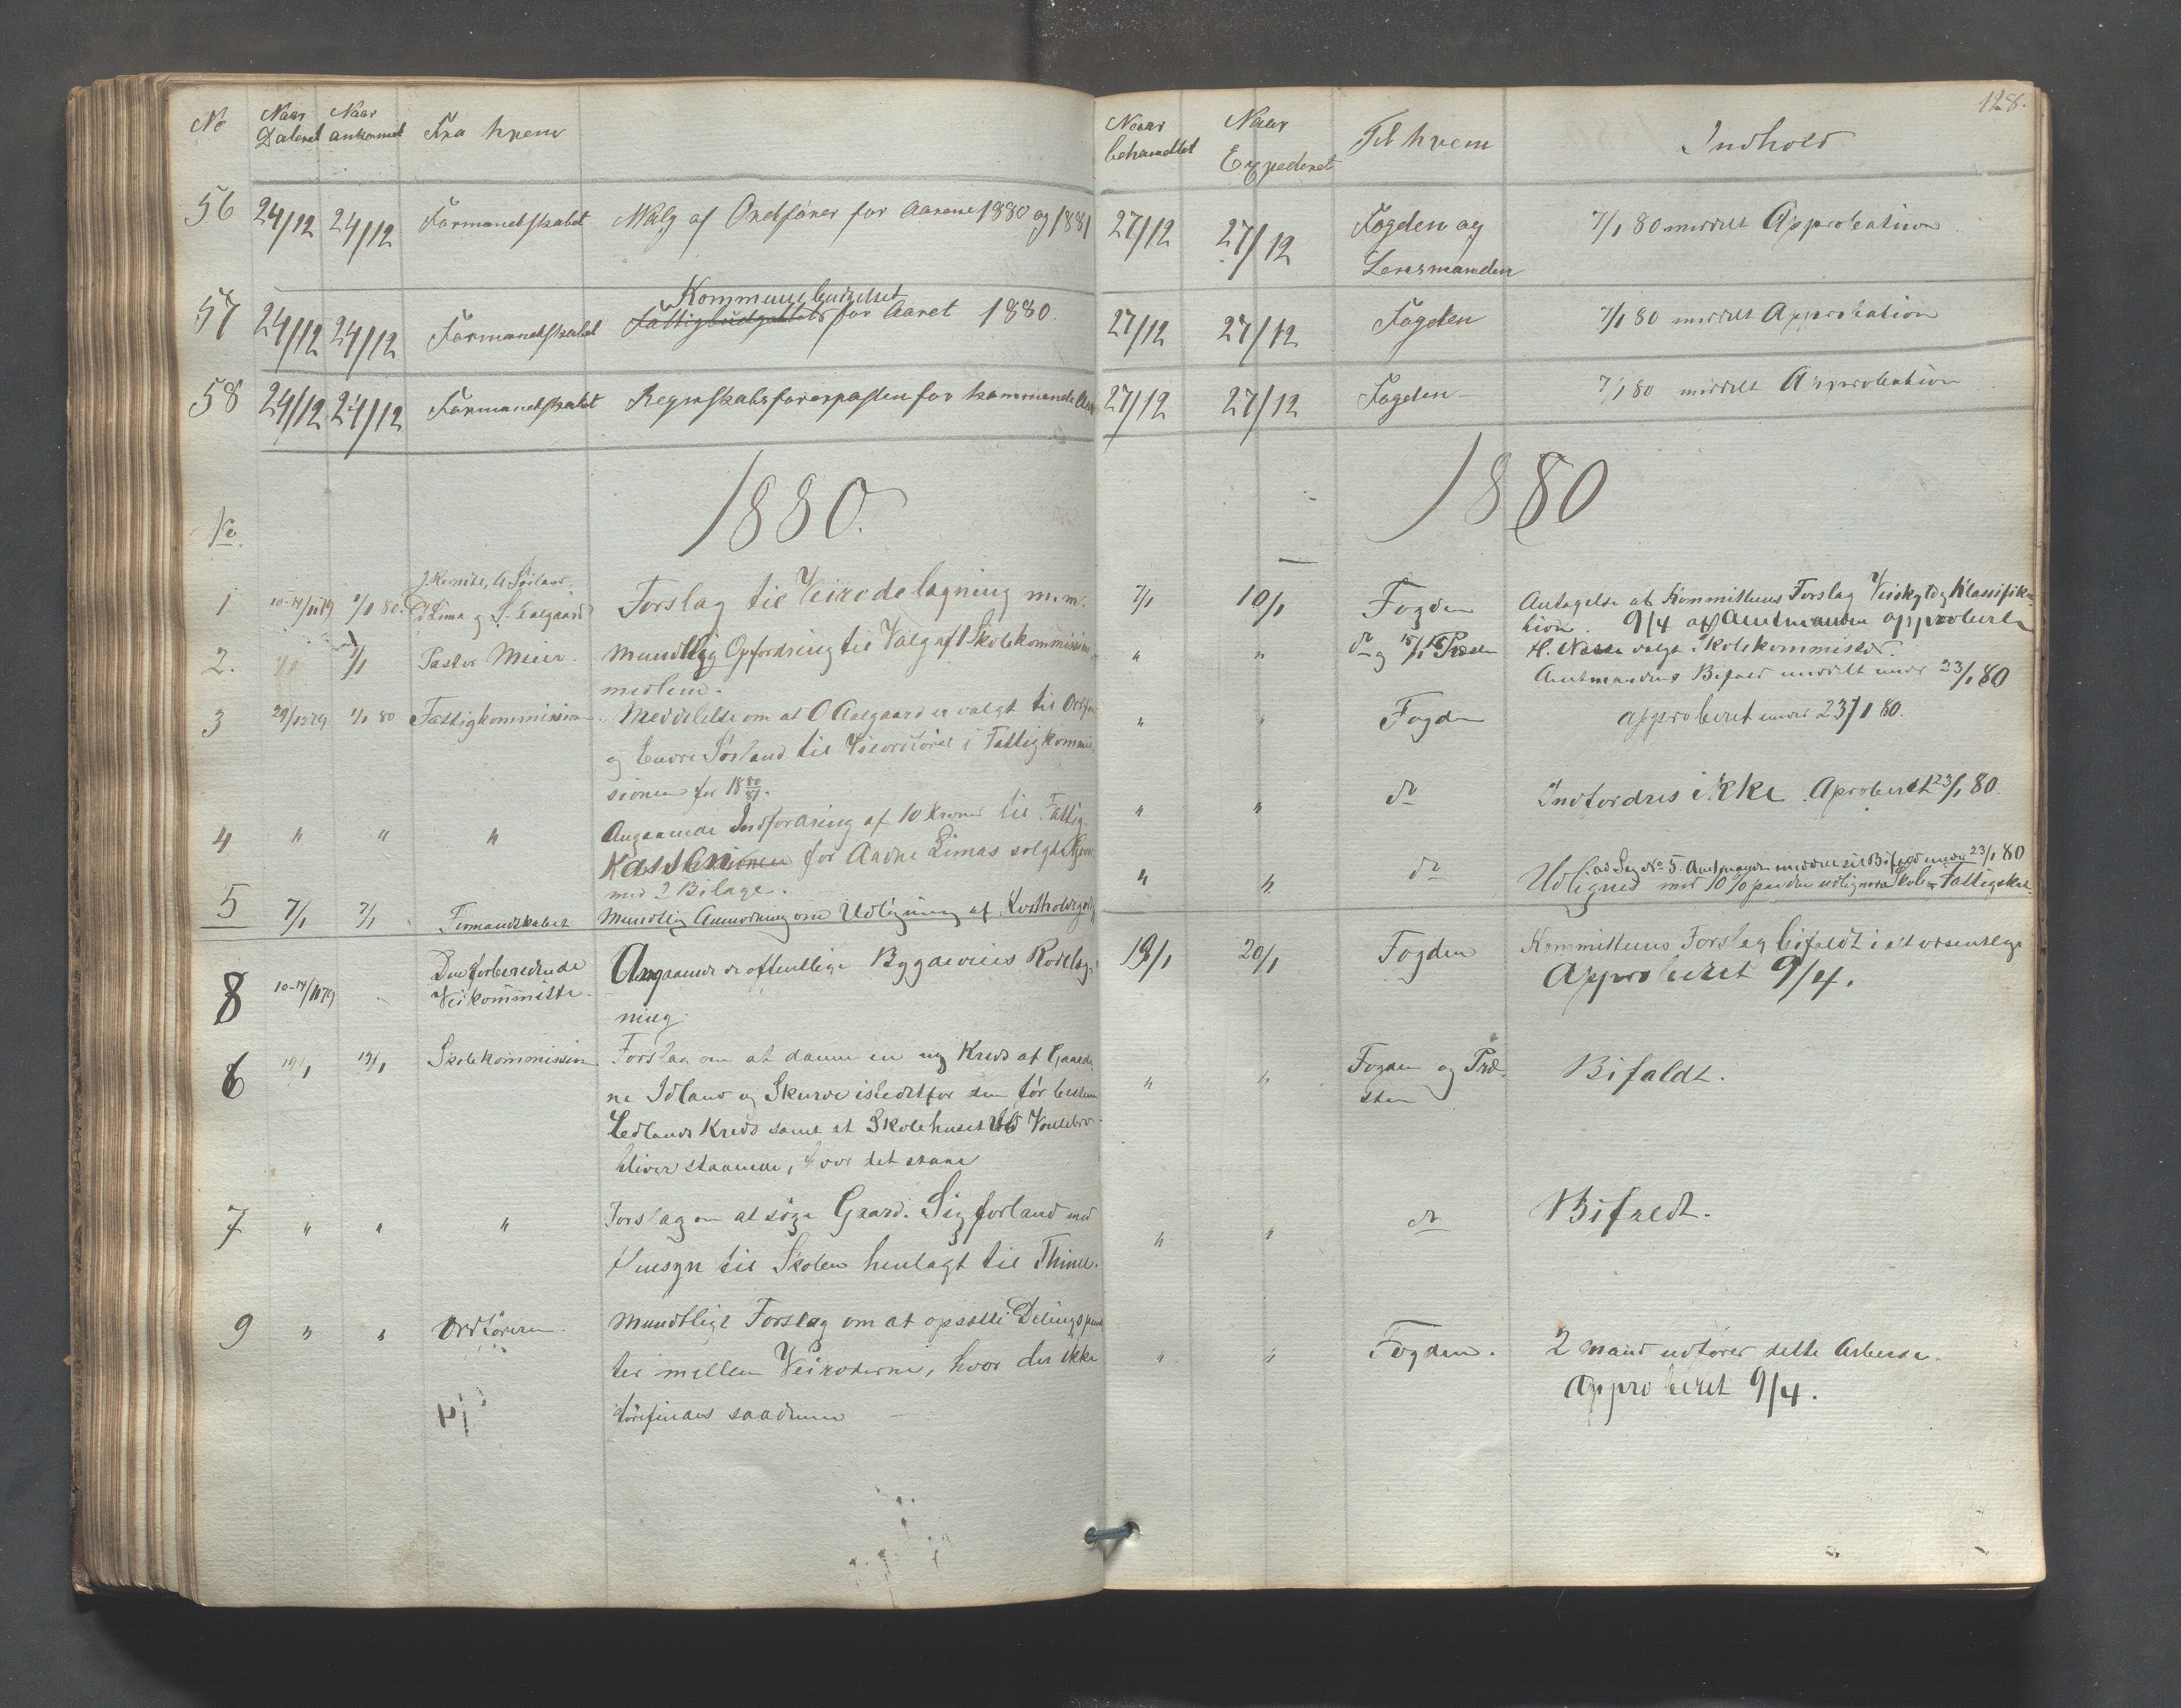 No
Naar Dateret
Naar ankommet
Fra hvem
56 24/12 24/12 Formandskabet Valg af Ordfører for Aarene 1880 og 1881
57 24/12 24/12 Formandskabet Kommunebudgettet
Fattigbudgettet for Aaret 1880.
58 24/12 24/12 Formandskabet Regnskabsførerposten for kommende Aar
1880.
No.
1 10-14/11 79 1/1 80. og S. Aalgaard Forslag til Veirodelagning m.m.
2. 1/1 1/1 Pastor Meier. Mundtlig Opfordring til Valg af 1 Skolekommissions
medlem.
3 29/12 79 1/1 80 Fattigkommission. Meddelelse om at O Aalgaard er valgt til Ordfører
og Endre Sørland til Viceordfører i Fattigkommis
sionen for 18 80/81.
4 " " " Angaaende Indfordring af 10 Kroner til Fattig
Kassen for Aadne Limas solgte
med 2 Bilage.
5 7/1 7/1 Formandskabet Mundtlig Anmodning om Udligning af
8 10-14/11 79 - Den forberedende
Veikommitte. Angaaende de offentlige Bygdeveies Rodelag-
ning.
6 19/1 19/1 Skolekommission Forslag om at danne en ny Kreds af Gaarde
ne Idland og Skurve istedetfor den før bestemte
Ledlands Kreds samt at Skolehuset ved
bliver staaende, hvor det staar
7 " " " Forslag om at søge Gaard. Sigforland med
Hensyn til Skolen henlagt til Thime.
9 " " Ordføreren. Mundtligt Forslag om at opsætte Delingspunk
ter mellem Veiroderne, hvor der ikke
forefindes saadanne
128.
Naar behandlet
Naar Expederet
Til hvem
Indhold
27/12 27/12 Fogden og
Lensmanden 7/1 80 meddelt Approbation
27/12 27/12 Fogden 7/1 80 meddelt Approbation
27/12 27/12 Fogden - 7/1 80 meddelt Approbation
1880
7/1 10/1 Fogden Antagelse af Kommitteens Forslag Veiskyld og Klassifika-
tion. 9/4 af Amtmanden approberet
" " do og 15/1 Præsten H. Næsse valgt Skolekommissær.
Amtmandens Bifald meddelt under 23/1 80
" " Fogden approberet under 23/1 80.
" " do Indfordres ikke. Aproberet 23/1 80.
ad Sag No 5. Amtmanden meddelt sit Bifald under 23/1 80
" " do Udlignes med 10 % paa den udlignede Skole- Fattigskat.
19/1 20/1 Fogden Kommitteens Forslag bifaldt i det væsentlige
Approberet 9/4.
" " Fogden og Præ-
sten Bifaldt.
" " do Bifaldt.
" " Fogden. 2 Mand udfører dette Arbeide.
Approberet 9/4.